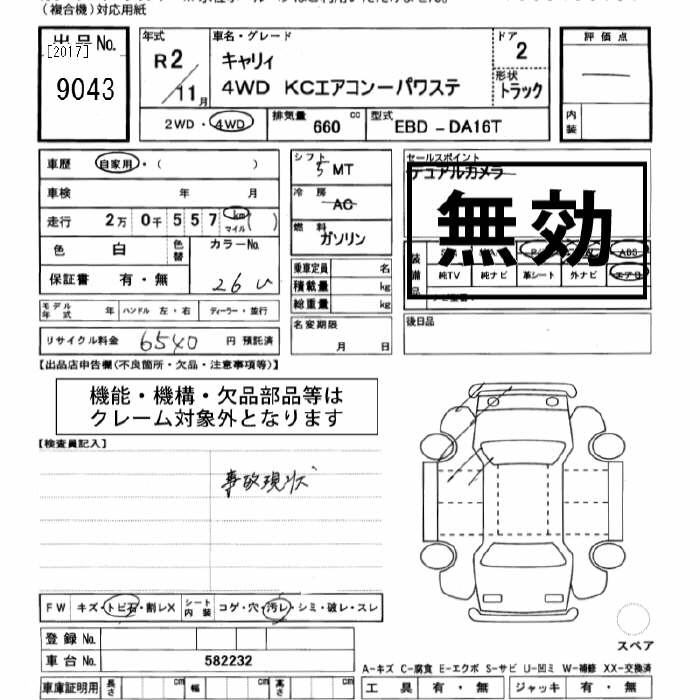 (複合機)対応用紙
出品No.
[2017]
9043
年式
R2/11月
車名・グレード
キャリィ
4WD KCエアコン−パワステ
ドア
2
形状
トラック
評価点
内装
2WD・4WD
排気量 660 cc
型式 EBD -DA16T
車歴 自家用・( )
車検 年 月
走行 2万 0千 5 5 7 km マイル ( )
色 白 色替
カラーNo.
26U
保証書 有・無
シフト 5 MT
冷房 AC
燃料 ガソリン
乗車定員 名
積載量 kg
総重量 kg
セールスポイント
デュアルカメラ
無効
装備品
ABS
純TV 純ナビ 革シート 外ナビ エアB
モデル年式 年 ハンドル 左・右 ディーラー・並行
名変期限
月 日
後日品
リサイクル料金 6540 円 預託済
【出品店申告欄(不良箇所・欠品・注意事項等)】
機能・機構・欠品部品等は
クレーム対象外となります
【検査員記入】
事故現状
FW キズ・トビ石・割レX
シート内装 コゲ・穴・汚レ・シミ・破レ・スレ
登録No.
車台No. 582232
スペア
A-キズ C-腐食 E-エクボ S-サビ U-凹ミ W-補修 XX-交換済
車庫証明用 長さ cm 幅 cm 高さ cm
工具 有・無 ジャッキ 有・無